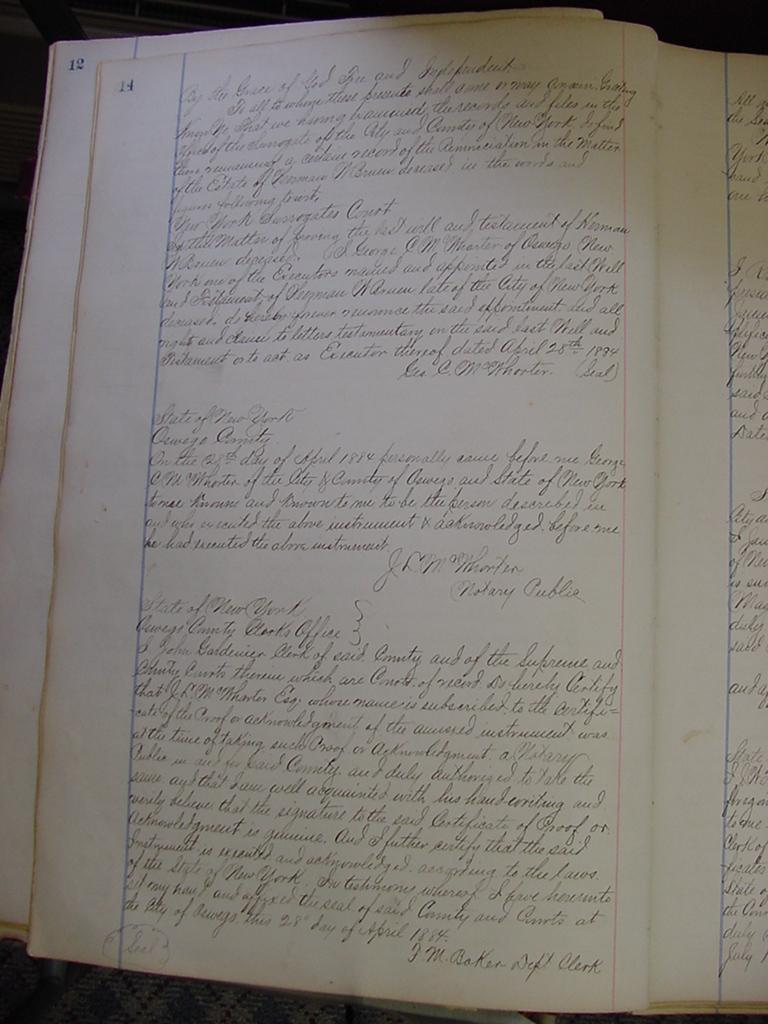 12
14
By the Grace of God Free and Independent
To all to whom these presents shall come or may concern Greeting
Know Ye that we having examined the records and files in the
Office of the Surrogate of the City and County of New York do find
there remaining a certain record of the Renunciation in the Matter
of the Estate of Herman W Bruen deceased in the words and
figures following to wit,
New York Surrogates Court
In the Matter of proving the last will and testament of Herman
W Bruen deceased. I George C McWhorter of Oswego New
York one of the Executors named and appointed in the last Will
and Testament, of Herman W Bruen late of the City of New York
deceased, do hereby renounce the said appointment, and all
right and claim to letters testamentary on the said last Will and
Testament or to act as Executor thereof dated April 28th 1884
Geo. C. McWhorter. (Seal)
State of New York
Oswego County
On the 28th day of April 1884 personally came before me George
C McWhorter of the City & County of Oswego and State of New York
to me known and known to me to be the person described in
and who executed the above instrument & acknowledged before me
he had executed the above instrument.
J. L. McWhorter
Notary Public
State of New York
Oswego County Clerks Office
I John Gardenier Clerk of said County and of the Supreme and
County Courts therein which are Courts of record Do hereby Certify
that J. L. McWhorter Esq. whose name is subscribed to the certifi-
cate of the Proof or acknowledgment of the annexed instrument was
at the time of taking such Proof or Acknowledgment, a Notary
Public in and for said County, and duly authorized to take the
same and that I am well acquainted with his handwriting and
verily believe that the signature to the said Certificate of Proof or
Acknowledgment is genuine. And I further certify that the said
Instrument is executed and acknowledged according to the laws
of the State of New York. In testimony whereof I have hereunto
set my hand and affixed the seal of said County and Courts at
the City of Oswego this 28" day of April 1884.
(Seal)
F. M. Baker Dept Clerk